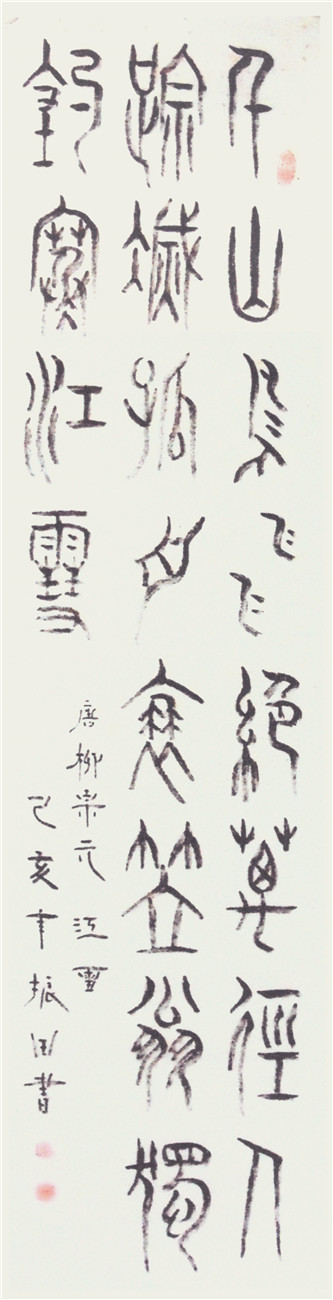 千山鳥飛絕萬徑人
踪滅孤舟蓑笠翁獨
釣寒江雪
唐柳宗元 江雪
己亥年振田書